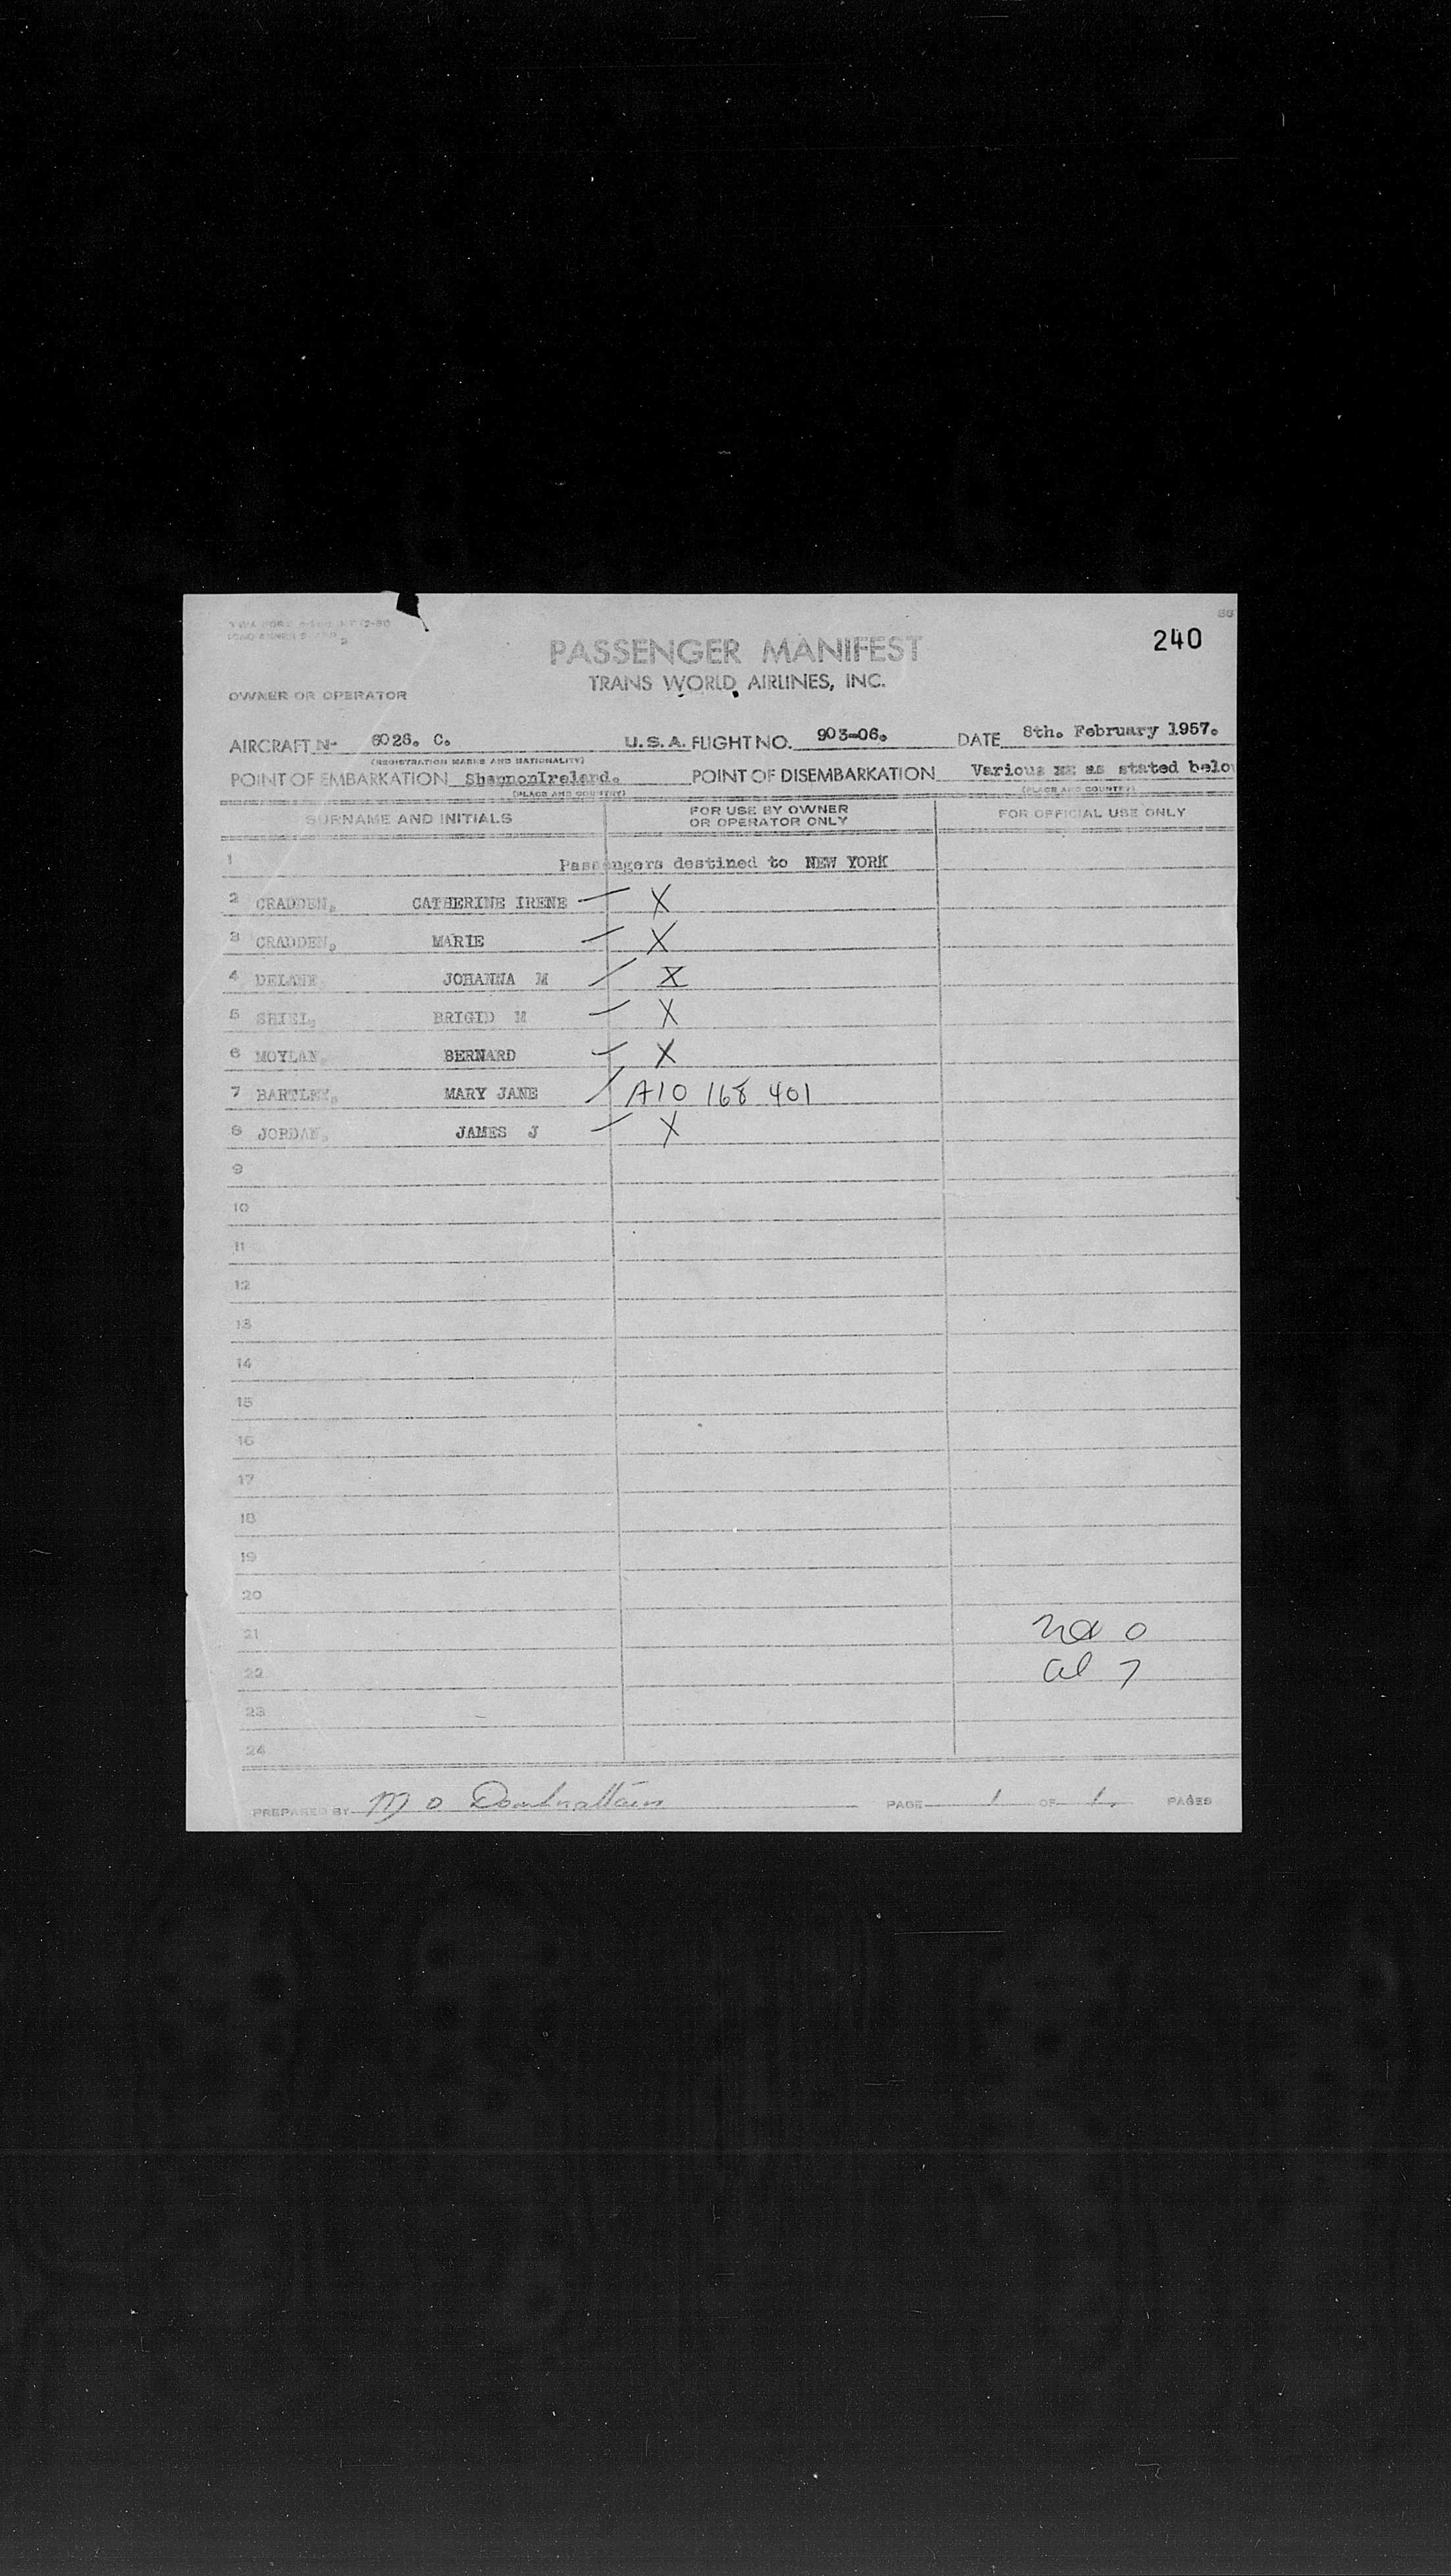 240
PASSENGER MANIFEST
TRANS WORLD AIRLINES, INC.
OWNER OR OPERATOR
AIRCRAFT N- 6026. C. U.S.A. FLIGHT NO. 903-06. DATE 8th. February 1957.
(REGISTRATION MARKS AND NATIONALITY)
POINT OF EMBARKATION ShannonIreland. POINT OF DISEMBARKATION Various as stated belo
(PLACE AND COUNTRY) (PLACE AND COUNTRY)
SURNAME AND INITIALS FOR USE BY OWNER OR OPERATOR ONLY FOR OFFICIAL USE ONLY
1 Passengers destined to NEW YORK
2 CRADDEN, CATHERINE IRENE X
3 CRADDEN, MARIE X
4 JOHANNA M X
5 SHIEL, BRIGID M X
6 MOYLAN, BERNARD X
7 BARTLEY, MARY JANE A10 168 401
8 JORDAN, JAMES J X
9
10
11
12
13
14
15
16
17
18
19
20
21 0
22 al 7
23
24
PREPARED BY M O PAGE 1 OF 1. PAGES